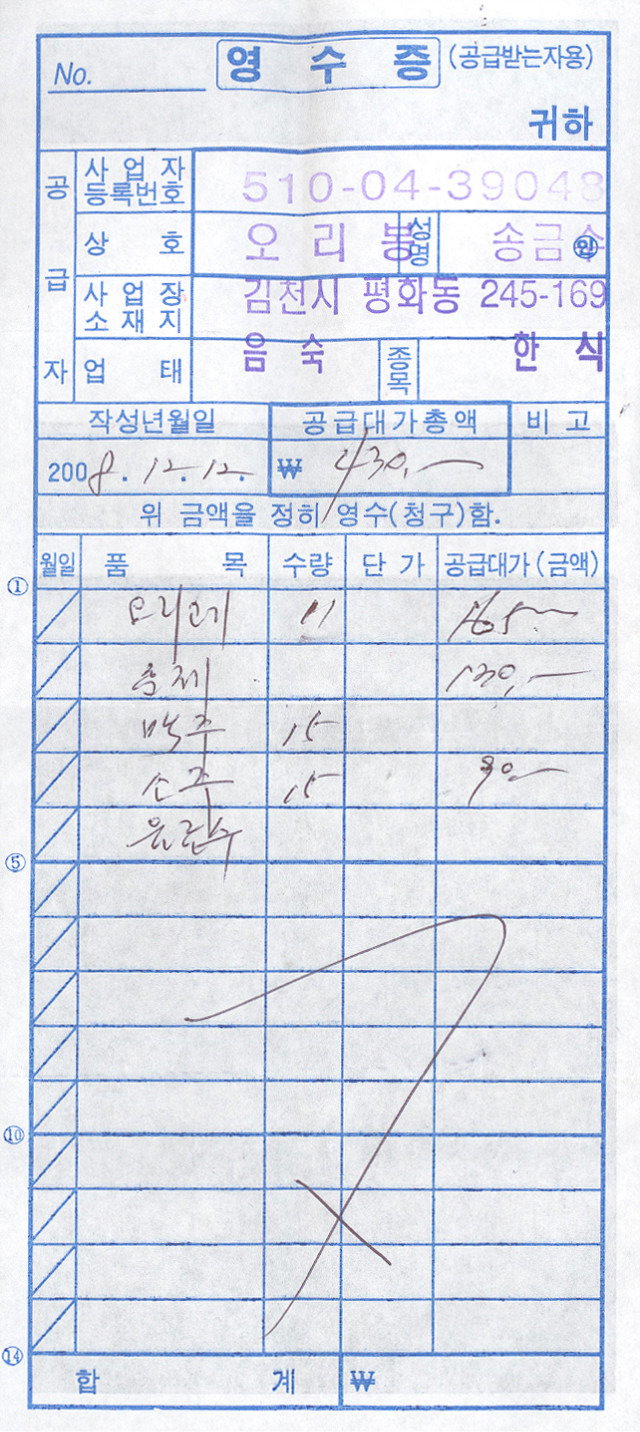 No. 영 수 증 (공급받는자용)
귀하
공급자
사업자등록번호 510-04-39048
상 호 오 리 봉 성명 송금수 ㊞
사업장소재지 김천시 평화동 245-169
업 태 음 숙 종목 한 식
작성년월일 공급대가총액 비 고
2008. 12. 12. ₩ 430,—
위 금액을 정히 영수(청구)함.
월일 품 목 수량 단 가 공급대가(금액)
① 오리고기 11 165—
130,—
맥주 15
소주 15 90—
음료수
⑤
⑩
⑭
합 계 ₩